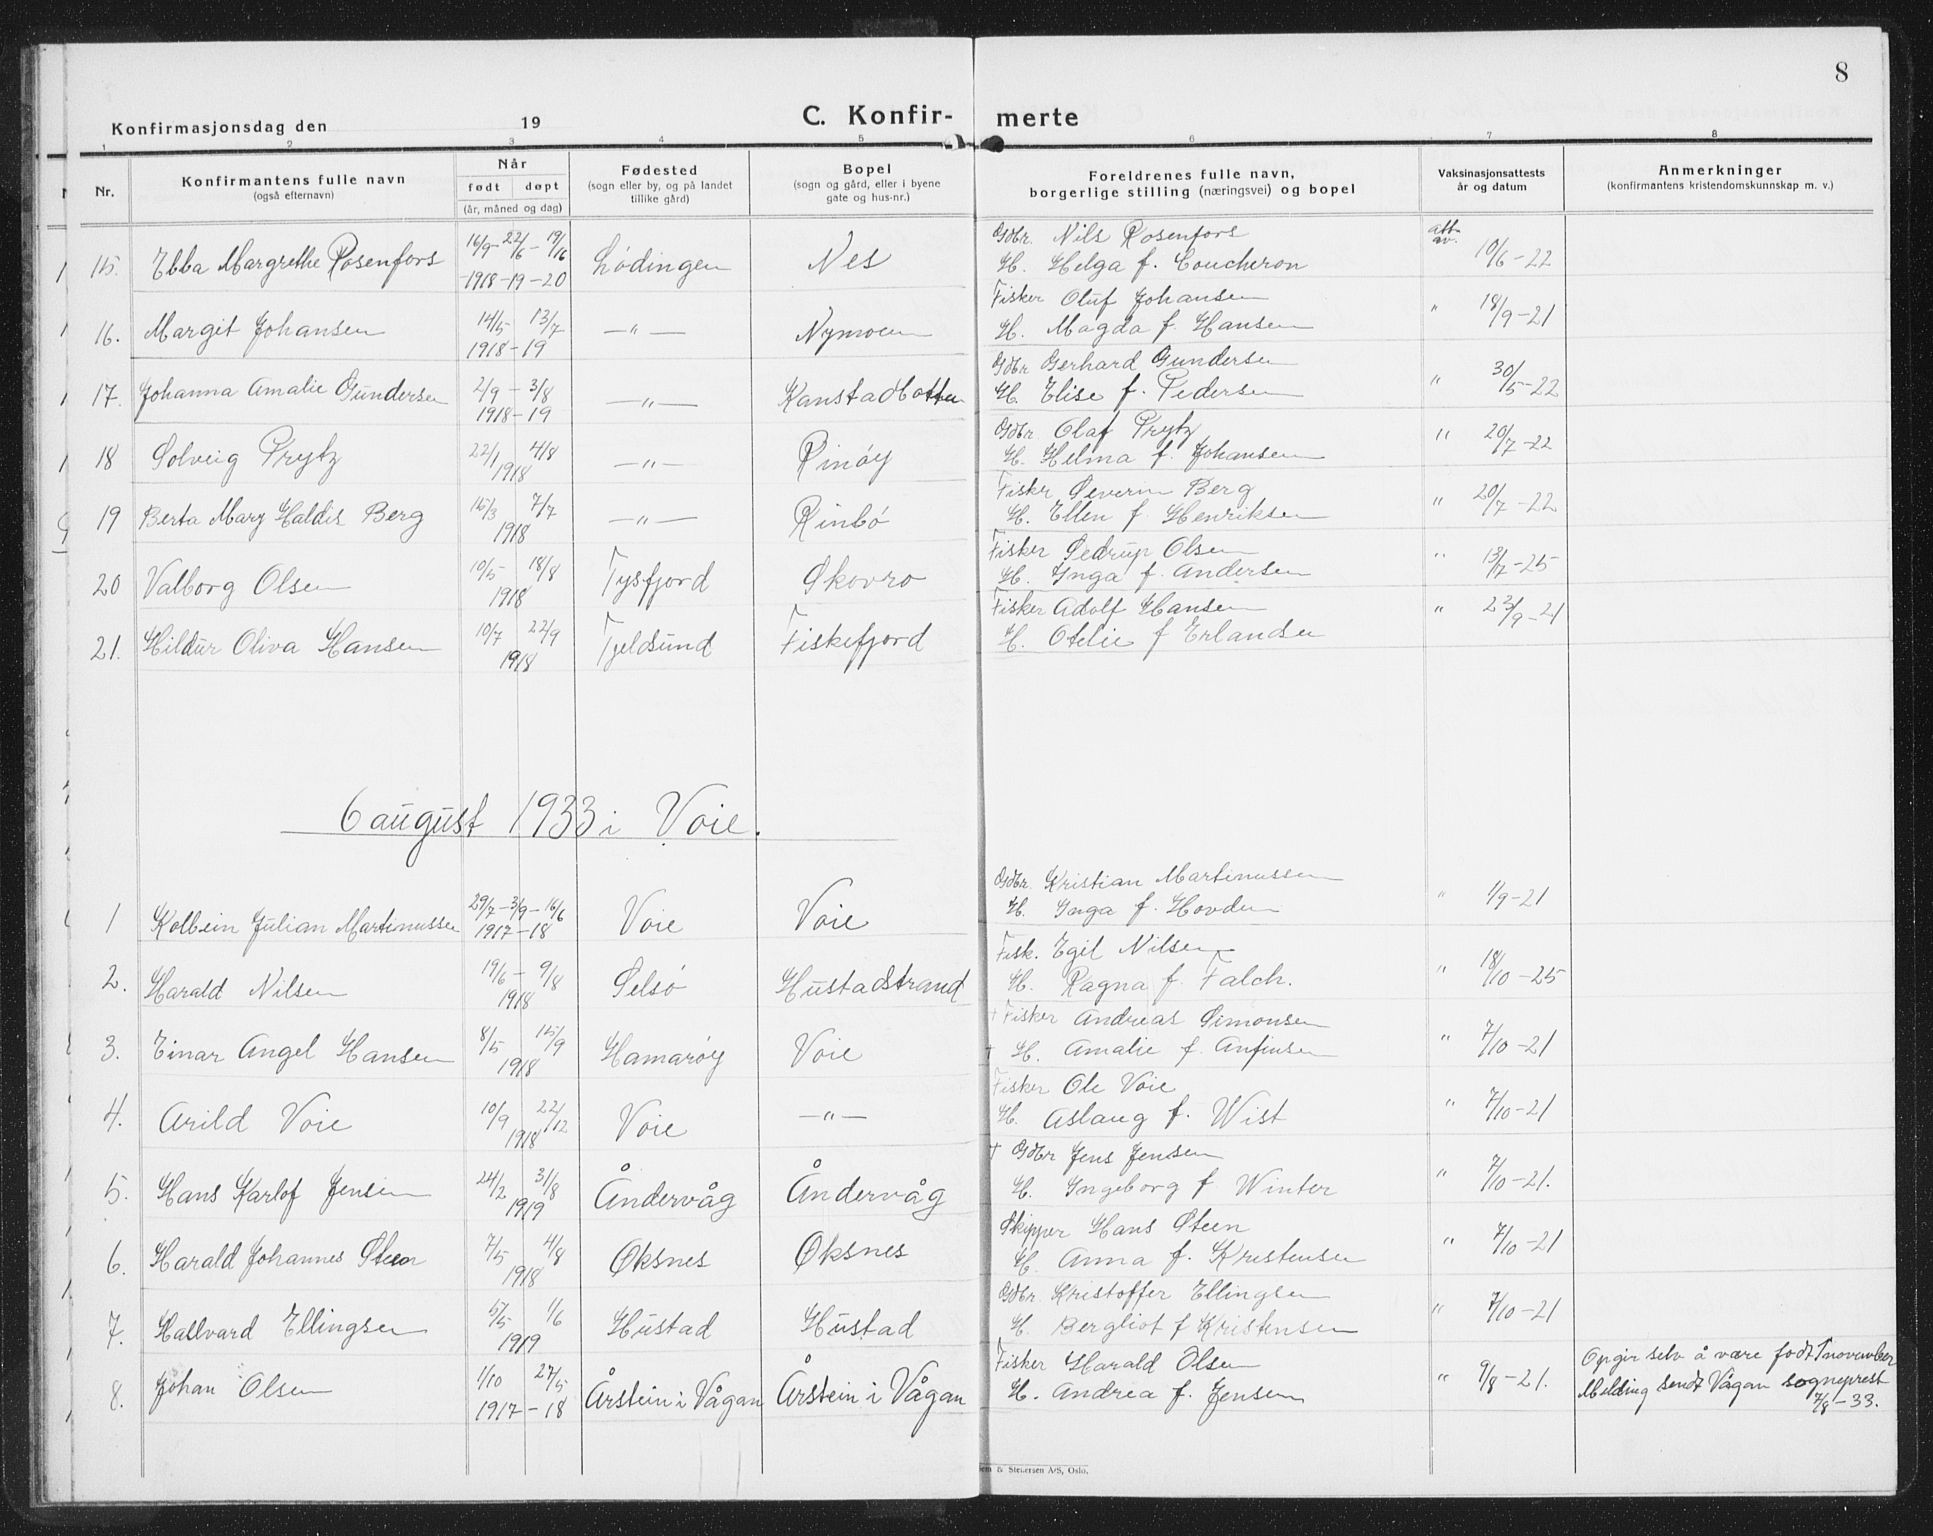 8
Konfirmasjonsdag den 19
C. Konfir- merte
1 2 3 4 5 6 7 8
Nr.
Konfirmantens fulle navn
(også efternavn)
Når
født døpt
(år, måned og dag)
Fødested
(sogn eller by, og på landet
tillike gård)
Bopel
(sogn og gård, eller i byene
gate og hus-nr.)
Foreldrenes fulle navn,
borgerlige stilling (næringsvei) og bopel
Vaksinasjonsattests
år og datum
Anmerkninger
(konfirmantens kristendomskunnskap m. v.)
15. Ebba Margrethe Rosenfors 16/9 - 22/6 - 19/16 1918 - 19 - 20 Lødingen Nes Gdbr. Nils Rosenfors att. av. 10/6 - 22
H. Helga f. Coucheron
16. Margit Johansen 14/5 13/7 1918 - 19 —"— Nymoen Fisker Oluf Johansen " 18/9 - 21
H. Magda f. Hansen
17. Johanna Amalie Gundersen 2/9 - 3/8 1918 - 19 —"— Kanstadbotten Gdbr Gerhard Gundersen " 30/5 - 22
H. Elise f. Pedersen
18 Solveig Prytz 22/1 4/8 1918 —"— Rinøy Gdbr Olaf Prytz " 20/7 - 22
H. Helma f. Johansen
19 Berta Mary Haldis Berg 15/3 7/7 1918 —"— Rinbø Fiskr Severin Berg " 20/7 - 22
H. Ellen f. Henriksen
20 Valborg Olsen 10/5 18/8 1918 Tysfjord Skovro Fisker Sedrup Olsen " 13/7 - 25
H. Inga f. Andersen
21. Hildur Oliva Hansen 10/7 22/9 1918 Tjeldsund Fiskefjord Fisker Adolf Hansen " 22/9 - 21
H. Otelie f Erlandsen
6 august 1933 i Voie.
1 Kolbein Julian Martinussen 29/7 - 3/9 - 16/6 1917 - 18 Voie Voie Gdbr. Kristian Martinussen " 1/9 - 21
H. Inga f. Hovden
2. Harald Nilsen 19/6 - 9/8 1918 Selsø Hustadstrand Fisk. Egil Nilsen " 18/10 - 25
H. Ragna f. Falch.
3. Einar Angel Hansen 8/5 15/9 1918 Hamarøy Voie + Fisker Andreas Simonsen " 7/10 - 21
+ H. Amalie f. Anfinsen
4. Arild Voie 10/9 22/12 1918 Voie —"— Fisker Ole Voie " 7/10 - 21
H. Aslaug f. Wist
5. Hans Karlof Jensen 24/2 31/8 1919 Åndervåg Åndervåg + Gdbr Jens Jensen " 7/10 - 21.
H. Ingeborg f Winter
6. Harald Johannes Steen 7/5 4/8 1918 Øksnes Øksnes Skipper Hans Steen " 7/10 - 21
H. Anna f. Kristensen
7. Hallvard Ellingsen 5/5 1/6 1919 Hustad Hustad Gdbr. Kristoffer Ellingsen " 7/10 - 21
H. Bergliot f Kristensen
8. Johan Olsen 1/10 27/5 1917 - 18 Årstein i Vågan Årstein i Vågan Fisker Harald Olsen " 9/8 - 21. Opgir selv å være født 1 november
H. Andrea f. Jensen Melding sendt Vågan sogneprest
7/8 - 33.
& Stenersen A/S, Oslo.